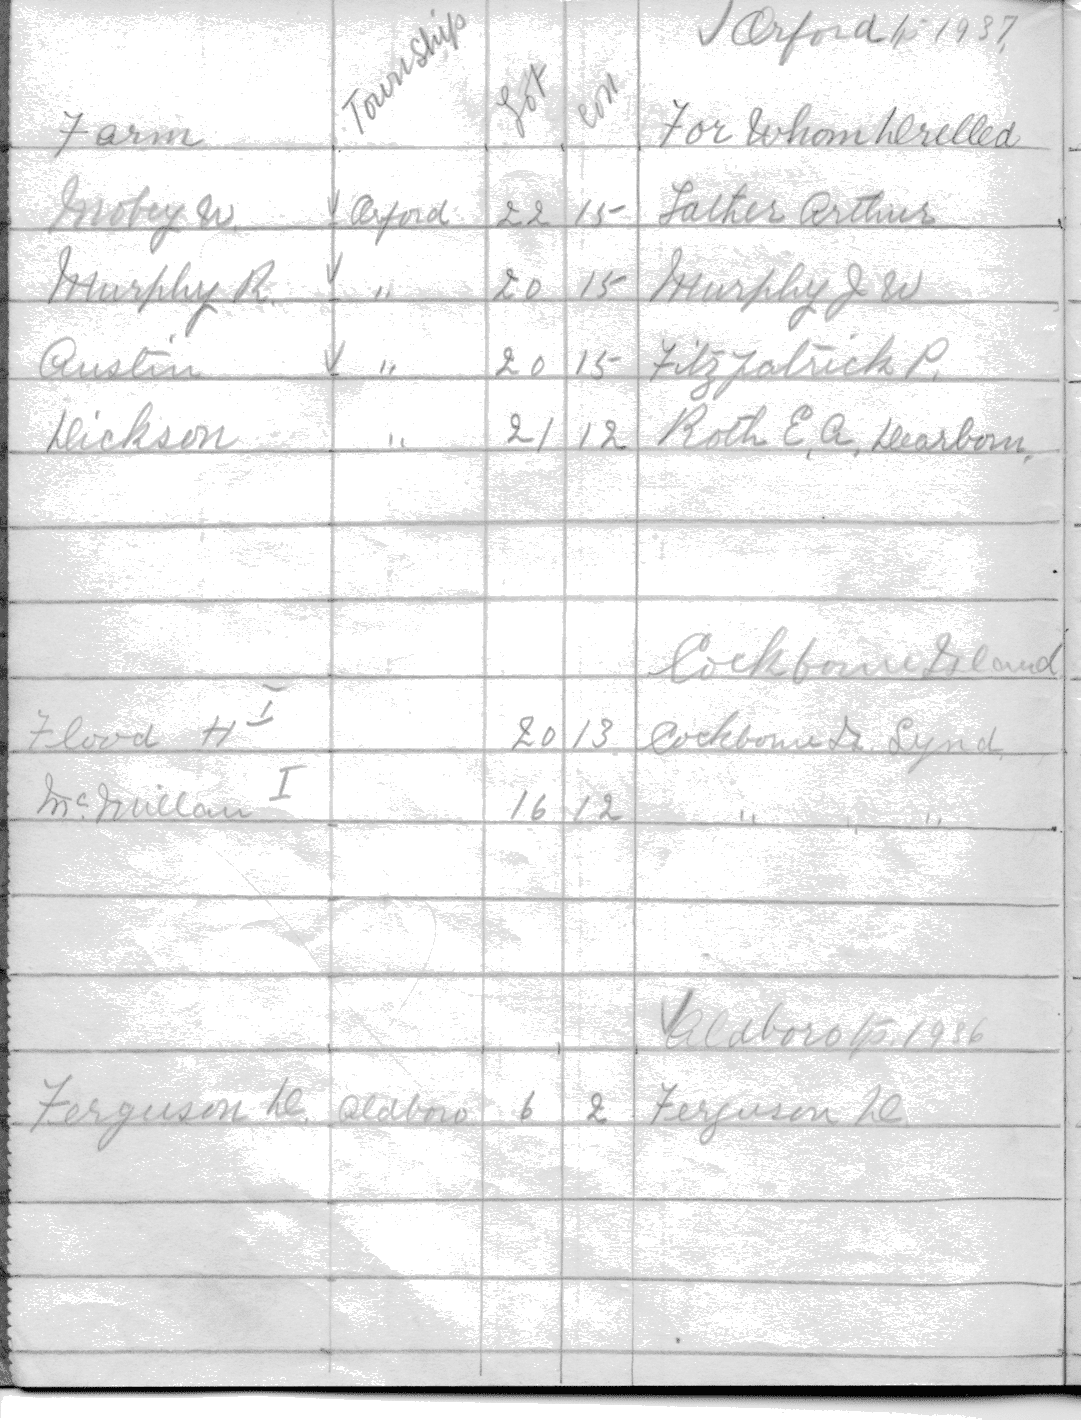 √ Orford tp 1937.
Farm Township Lot Con For Whom Drelled
Mobey W. √ Orford 22 15 Father Arthur
Murphy R. √ " 20 15 Murphy J W
Austin √ " 20 15 Fitzpatrick P.
Dickson " 21 12 Roth E, A, Dearborn,
Cockborne Island
Flood H I 20 13 Cockborne Is. Synd.
Mc Millan I 16 12 " "
√ Aldboro tp. 1936
Ferguson D. Aldboro 6 2 Ferguson D.